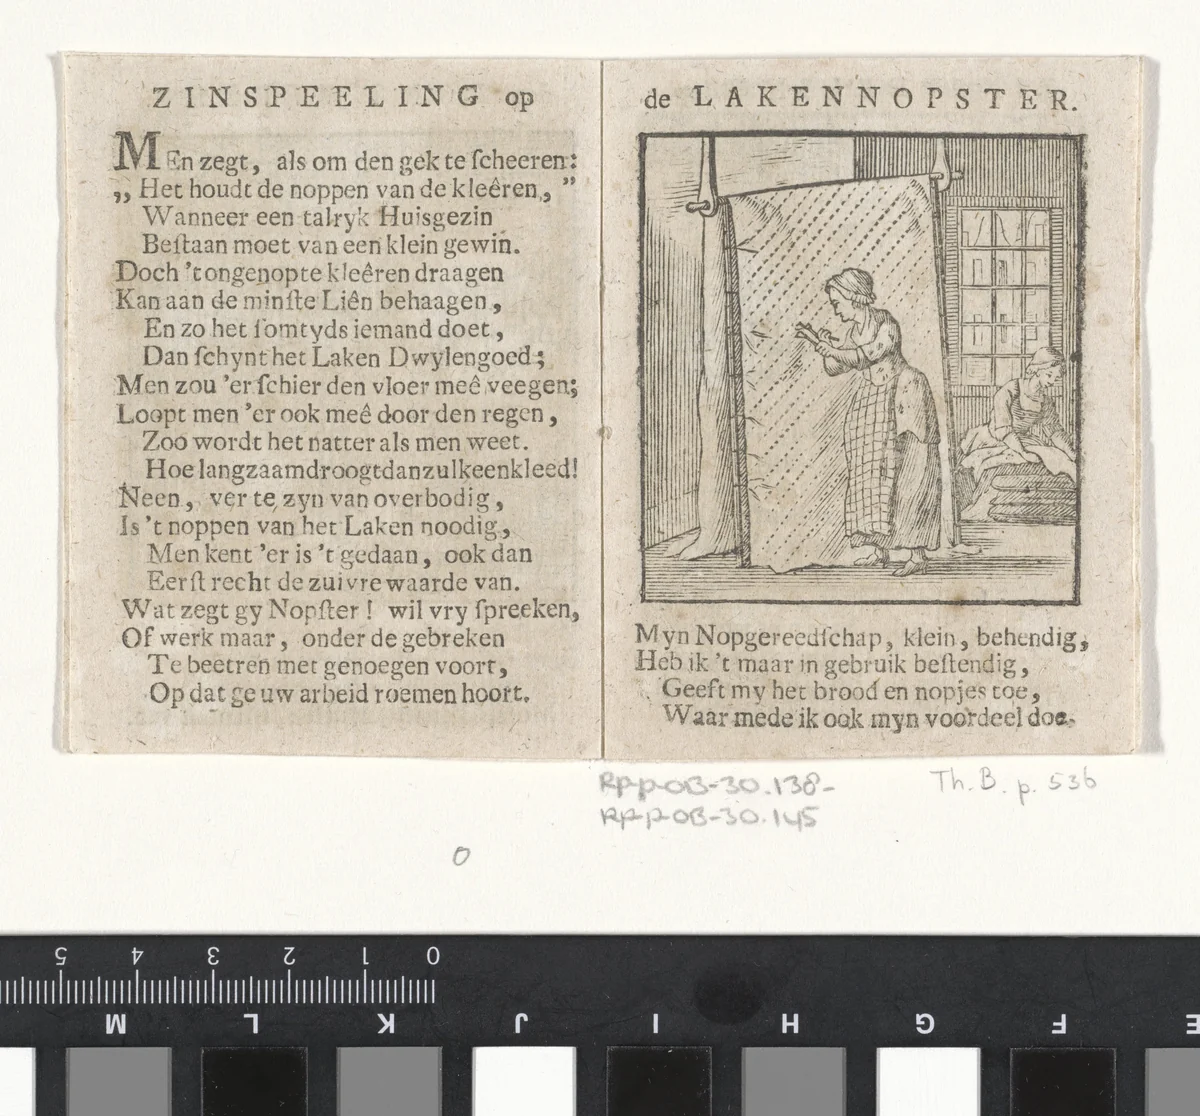 ZINSPEELING op
MEn zegt, als om den gek te ſcheeren:
„ Het houdt de noppen van de kleêren, ”
Wanneer een talryk Huisgezin
Beſtaan moet van een klein gewin.
Doch 't ongenopte kleêren draagen
Kan aan de minſte Liên behaagen,
En zo het ſomtyds iemand doet,
Dan ſchynt het Laken Dwylengoed;
Men zou 'er ſchier den vloer meê veegen;
Loopt men 'er ook meê door den regen,
Zoo wordt het natter als men weet.
Hoe langzaam droogt dan zulk een kleed!
Neen, ver te zyn van overbodig,
Is 't noppen van het Laken noodig,
Men kent 'er is 't gedaan, ook dan
Eerſt recht de zuivre waarde van.
Wat zegt gy Nopſter! wil vry ſpreeken,
Of werk maar, onder de gebreken
Te beetren met genoegen voort,
Op dat ge uw arbeid roemen hoort.
de LAKENNOPSTER.
Myn Nopgereedſchap, klein, behendig,
Heb ik 't maar in gebruik beſtendig,
Geeft my het brood en nopjes toe,
Waar mede ik ook myn voordeel doe.
RP-P-OB-30.138-
RP-P-OB-30.145
Th. B. p. 536
0
5 4 3 2 1 0
M L K J I H G F E